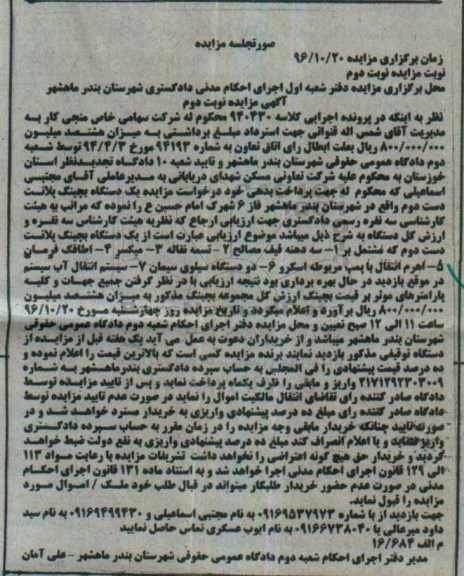 صورتجلسه مزایده
زمان برگزاری مزایده ۹۶/۱۰/۲۰
نوبت مزایده نوبت دوم
محل برگزاری مزایده دفتر شعبه اول اجرای احکام مدنی دادگستری شهرستان بندر ماهشهر
آگهی مزایده نوبت دوم
نظر به اینکه در پرونده اجرایی کلاسه ۹۴۰۳۳۰ محکوم له شرکت سهامی خاص منجی کار به
مدیریت آقای شمس اله قنواتی جهت استرداد مبلغ برداشتی به میزان هشتصد میلیون
۸۰۰/۰۰۰/۰۰۰ ریال بعلت ابطال رای اتاق تعاون به شماره ۹۴۱۹۳ مورخ ۹۴/۴/۳ توسط شعبه
دوم دادگاه عمومی حقوقی شهرستان بندر ماهشهر و تایید شعبه ۱۰ دادگاه تجدیدنظر استان
خوزستان به محکوم علیه شرکت تعاونی مسکن شهدای دریابانی به مدیرعاملی آقای مجتبی
اسماعیلی که محکوم له جهت پرداخت بدهی خود درخواست مزایده یک دستگاه بچینگ پلانت
دست دوم واقع در شهرستان بندر ماهشهر فاز ۶ شهرک امام حسین ع را نموده که مراتب به هیئت
کارشناسی سه نفره رسمی دادگستری جهت ارزیابی ارجاع که نظریه هیئت کارشناسی سه نفره و
ارزش کل دستگاه به شرح ذیل میباشد موضوع ارزیابی عبارت است از یک دستگاه بچینگ پلانت
دست دوم که مشتمل بر ۱- سه دهنه قیف مصالح ۲- تسمه نقاله ۳- میکسر ۴- اطاقک فرمان
۵- اهرم انتقال با پمپ مربوطه اسکرو ۶- دو دستگاه سیلوی سیمان ۷- سیستم انتقال آب سیستم
در موقع بازدید در حال بهره برداری بود نتیجه ارزیابی با در نظر گرفتن جمیع جهات و کلیه
پارامترهای موثر بر قیمت بچینگ ارزش کل مجموعه بچینگ مذکور به میزان هشتصد میلیون
۸۰۰/۰۰۰/۰۰۰ ریال برآورد و اعلام میگردد و تاریخ مزایده روز چهارشنبه مورخ ۹۶/۱۰/۲۰
ساعت ۱۱ الی ۱۲ صبح تعیین و محل مزایده دفتر اجرای احکام شعبه دوم دادگاه عمومی حقوقی
شهرستان بندر ماهشهر میباشد و از خریداران دعوت به عمل می آید یک هفته قبل از مزایده از
دستگاه توقیفی مذکور بازدید نمایند برنده مزایده کسی است که بالاترین قیمت را اعلام نموده و
ده درصد قیمت پیشنهادی را فی المجلس به حساب سپرده دادگستری بندرماهشهر به شماره
۲۱۷۱۲۹۲۳۰۳۰۰۹ واریز و مابقی را ظرف یکماه پرداخت نماید و پس از تایید مزایده توسط
دادگاه صادر کننده رای تقاضای انتقال مالکیت اموال را نماید در صورت عدم تایید مزایده توسط
دادگاه صادر کننده رای مبلغ ده درصد پیشنهادی واریزی به خریدار مسترد خواهد شد و در
صورت تایید چنانکه خریدار مابقی وجه مزایده را در زمان مقرر به حساب سپرده دادگستری
واریز ننماید و یا اعلام انصراف کند مبلغ ده درصد پیشنهادی واریزی به نفع دولت ضبط خواهد
گردید و خریدار حق هیچ گونه اعتراضی را نخواهد داشت تشریفات مزایده با رعایت مواد ۱۱۳
الی ۱۲۹ قانون اجرای احکام مدنی اجرا خواهد شد و به استناد ماده ۱۳۱ قانون اجرای احکام
مدنی در صورت عدم حضور خریدار طلبکار میتواند در قبال طلب خود ملک / اموال مورد
مزایده را قبول نماید.
جهت بازدید از با شماره ۰۹۱۶۹۵۳۷۹۷۳ به نام مجتبی اسماعیلی و ۰۹۱۶۹۴۹۹۴۳۰ به نام سید
داود میرعالی یا ۰۹۱۶۶۷۳۸۰۴۰ به نام ایوب عسکری تماس حاصل نمایید
م الف ۱۶/۶۸۴
مدیر دفتر اجرای احکام شعبه دوم دادگاه عمومی حقوقی شهرستان بندر ماهشهر - علی آمان